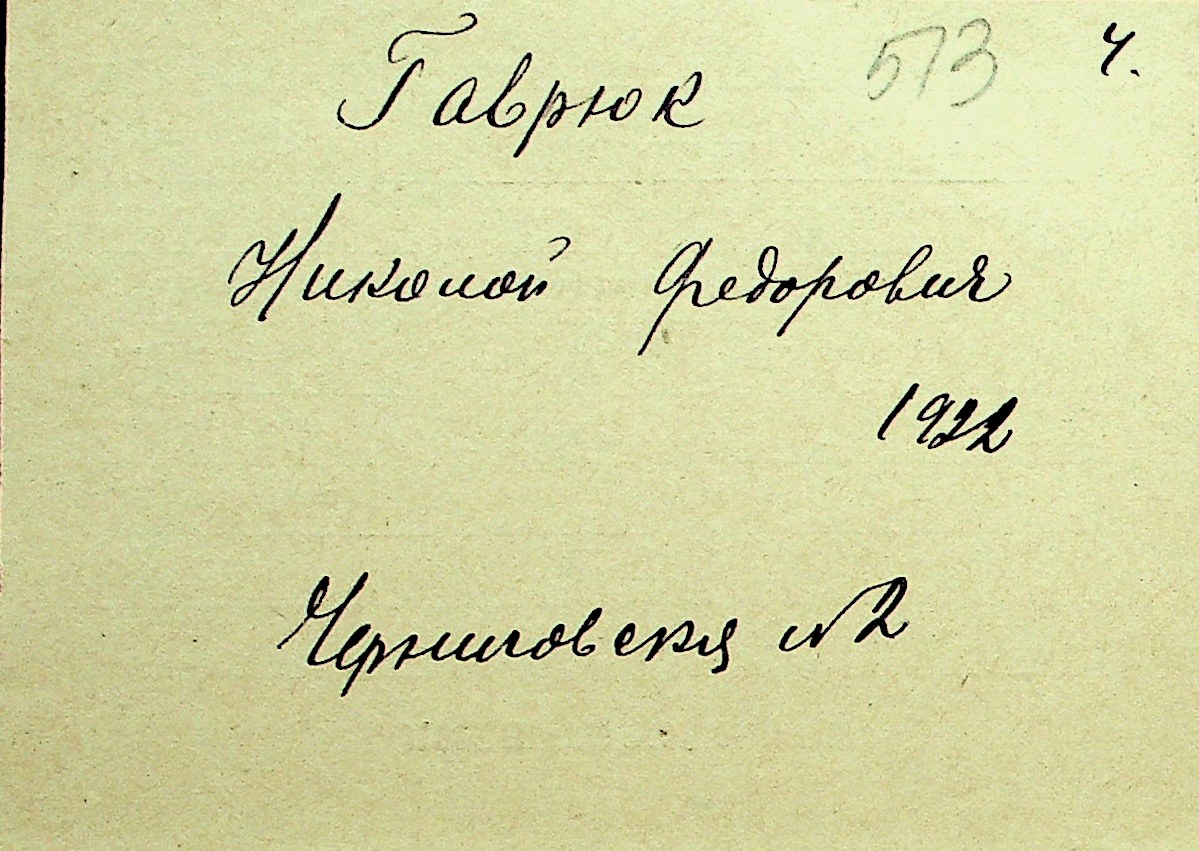 573 ч.
Гаврюк
Николай Федорович
1922
Черниговская №2